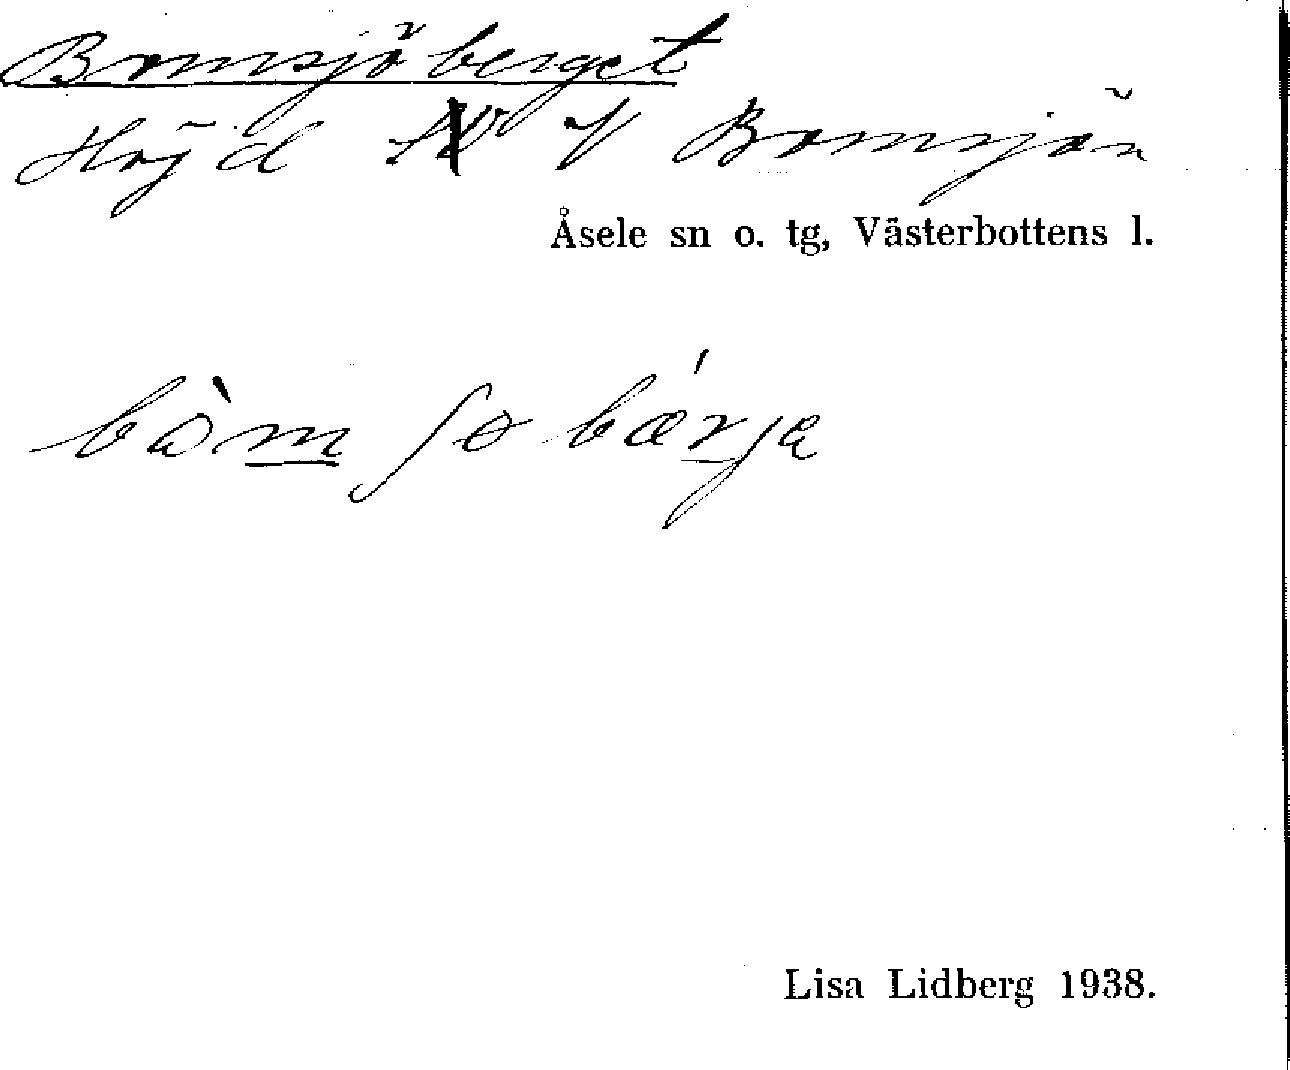 Bomsjöberget
Höjd V Bomsjön
Åsele sn o. tg, Västerbottens l.
Lisa Lidberg 1938.